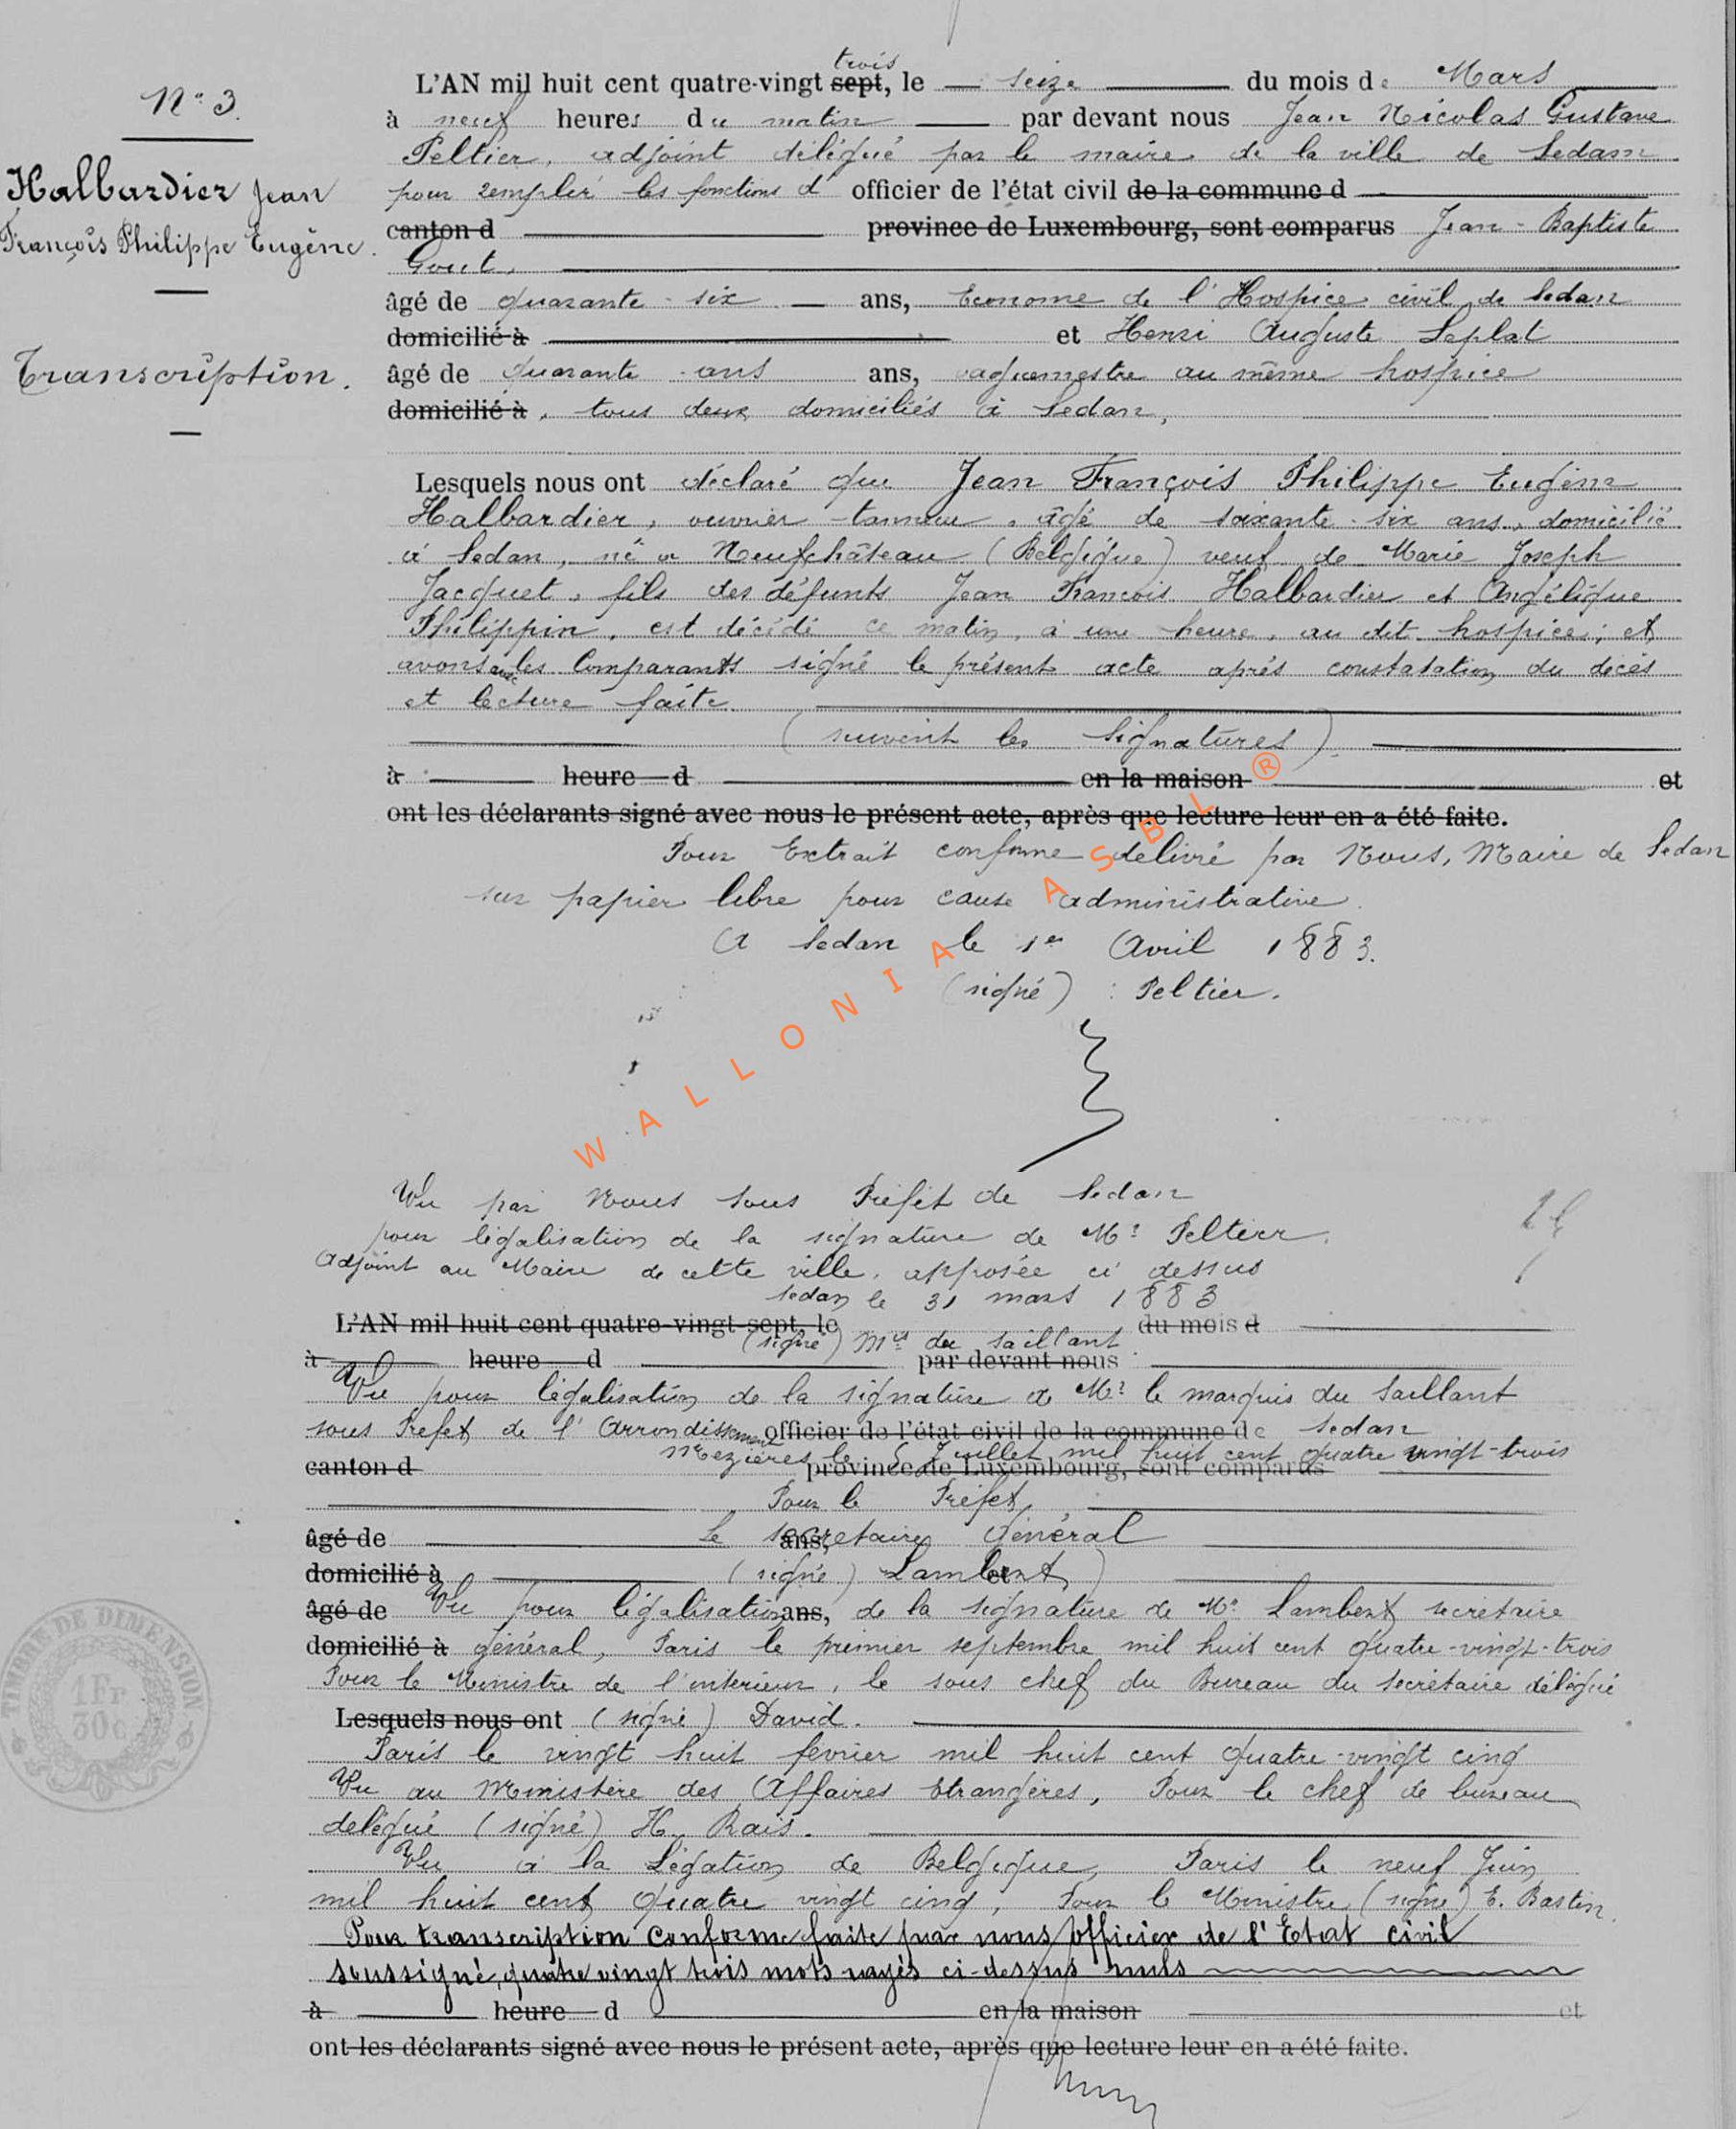 N° 3.
Halbardier Jean
François Philippe Eugène.
Transcription.
trois
L'AN mil huit cent quatre-vingt sept, le seize du mois de Mars
à neuf heures du matin par devant nous Jean Nicolas Gustave
Peltier, adjoint délégué par le maire de la ville de Sedan
pour remplir les fonctions d' officier de l'état civil de la commune d
canton d province de Luxembourg, sont comparus Jean-Baptiste
Gout,
âgé de quarante-six ans, Econome de l'Hospice civil de Sedan
domicilié à et Henri Auguste Leplat
âgé de quarante ans ans, vaguemestre au même hospice
domicilié à, tous deux domiciliés à Sedan,
Lesquels nous ont déclaré que Jean François Philippe Eugène
Halbardier, ouvrier tanneur, âgé de soixante-six ans, domicilié
à Sedan, né à Neufchâteau (Belgique) veuf de Marie Joseph
Jacquet, fils des défunts Jean François Halbardier et Angélique
Philippin, est décédé ce matin, à une heure, au dit hospice; et
avons avec les Comparants signé le présent acte après constatation du décès
et lecture faite.
(suivent les signatures)
à heure d en la maison et
ont les déclarants signé avec nous le présent acte, après que lecture leur en a été faite.
Pour Extrait conforme délivré par Nous, Maire de Sedan
sur papier libre pour cause administrative.
A Sedan le 1er Avril 1883.
(signé) : Peltier.
WALLONIA ASBL ®
Vu par Nous Sous Préfet de Sedan
pour légalisation de la signature de Mr Peltier,
Adjoint au Maire de cette ville, apposée ci dessus
Sedan le 31 mars 1883
L'AN mil huit cent quatre-vingt-sept, le du mois d
(signé) Mis du Saillant
à heure d par devant nous
Vu pour légalisation de la signature de Mr le marquis du Saillant
sous Prefet de l'Arrondissement officier de l'état civil de la commune de Sedan
Mezières le 5 Juillet mil huit cent quatre vingt-trois
canton d province de Luxembourg, sont comparus
Pour le Préfet,
âgé de Le secretaire ans, Général
domicilié à (signé) Lambert) et
âgé de Vu pour légalisation ans, de la signature de Mr Lambert secretaire
domicilié à général, Paris le premier septembre mil huit cent quatre-vingt-trois
Pour le Ministre de l'interieur, le sous chef du Bureau du secrétaire délégué
Lesquels nous ont (signé) David.
Paris le vingt huit fevrier mil huit cent quatre-vingt cinq
Vu au Ministère des Affaires Etrangères, Pour le chef de bureau
delégué (signé) H. Rais.
Vu à la Légation de Belgique, Paris le neuf Juin
mil huit cent quatre vingt cinq, Pour le Ministre (signé) E. Bastin.
Pour transcription Conforme faite par nous Officier de l'Etat civil
soussigné, quatre vingt trois mots rayés ci-dessus nuls
à heure d en la maison et
ont les déclarants signé avec nous le présent acte, après que lecture leur en a été faite.
TIMBRE DE DIMENSION
1Fr
30c